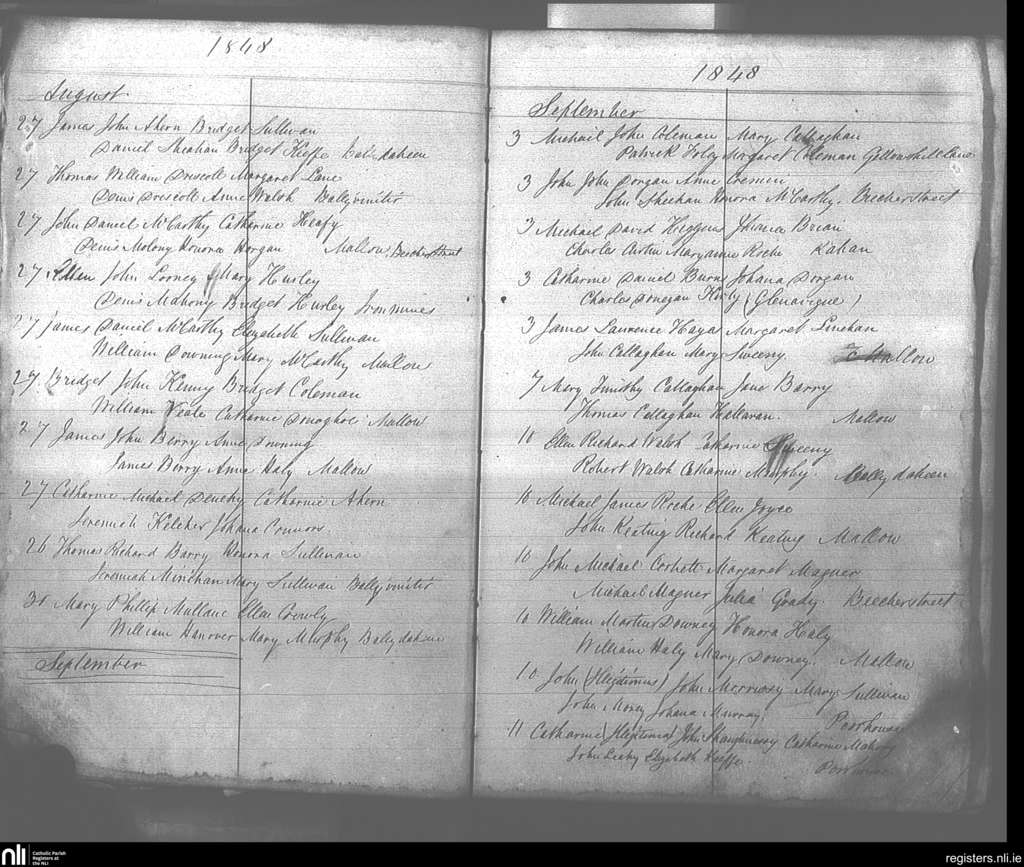 1848
August
27 James John Ahern Bridget Sullivan
Daniel Sheahan Bridget Keeffe Ballydaheen
27 Thomas William Driscoll Margaret Lane
Denis Driscoll Anne Walsh Ballyviniter
27 John Daniel McCarthy Catharine Heafy
Denis Molony Honora Horgan Mallow Beecher Street
27 Ellen John Looney Mary Hurley
Denis Mahony Bridget Hurley
27 James Daniel McCarthy Elizabeth Sullivan
William Downing Mary McCarthy Mallow
27 Bridget John Kenny Bridget Coleman
William Veale Catharine Donoghoe Mallow
27 James John Berry Anne Downing
James Berry Anne Haly Mallow
27 Catharine Michael Denehy Catharine Ahern
Jeremiah Keleher Johana Connors
26 Thomas Richard Barry Honora Sullivan
Jeremiah Minehan Mary Sullivan Ballyviniter
30 Mary Phillip Mullane Ellen Crowly
William Hanover Mary Murphy Ballydaheen
September
1848
September
3 Michail John Coleman Mary Callaghan
Patrick Foley Margaret Coleman
3 John John Dorgan Anne Cremin
John Sheehan Honora McCarthy. Beecher Street
3 Michael David Higgins Brian
Charles Curtin Maryanne Roche Rahan
3 Catharine Daniel Burns Johana Dorgan
Charles Donegan
3 James Laurence Hayes Margaret Linehan
John Callaghan Mary Sweeny. Mallow
7 Mary Timothy Callaghan Jane Barry
Thomas Callaghan Halloran. Mallow
10 Ellen Richard Walsh Catharine Sweeny
Robert Walsh Catharine Murphy. Ballydaheen
10 Michael James Roche Ellen Joyce
John Keating Richard Keating Mallow
10 John Michael Corbett Margaret Magner
Michael Magner Julia Grady Beecher Street
10 William Martin Downey Honora Haly
William Haly Mary Downey. Mallow
10 John (Illegitimus) John Morrissy Mary Sullivan
John Mory Johana Murray. Poorhouse
11 Catharine (Illegitima) John Shaughnessy Catharine Mahony
John Leehy Elizabeth Keeffe Poorhouse
nli Catholic Parish
Registers at
the NLI
registers.nli.ie